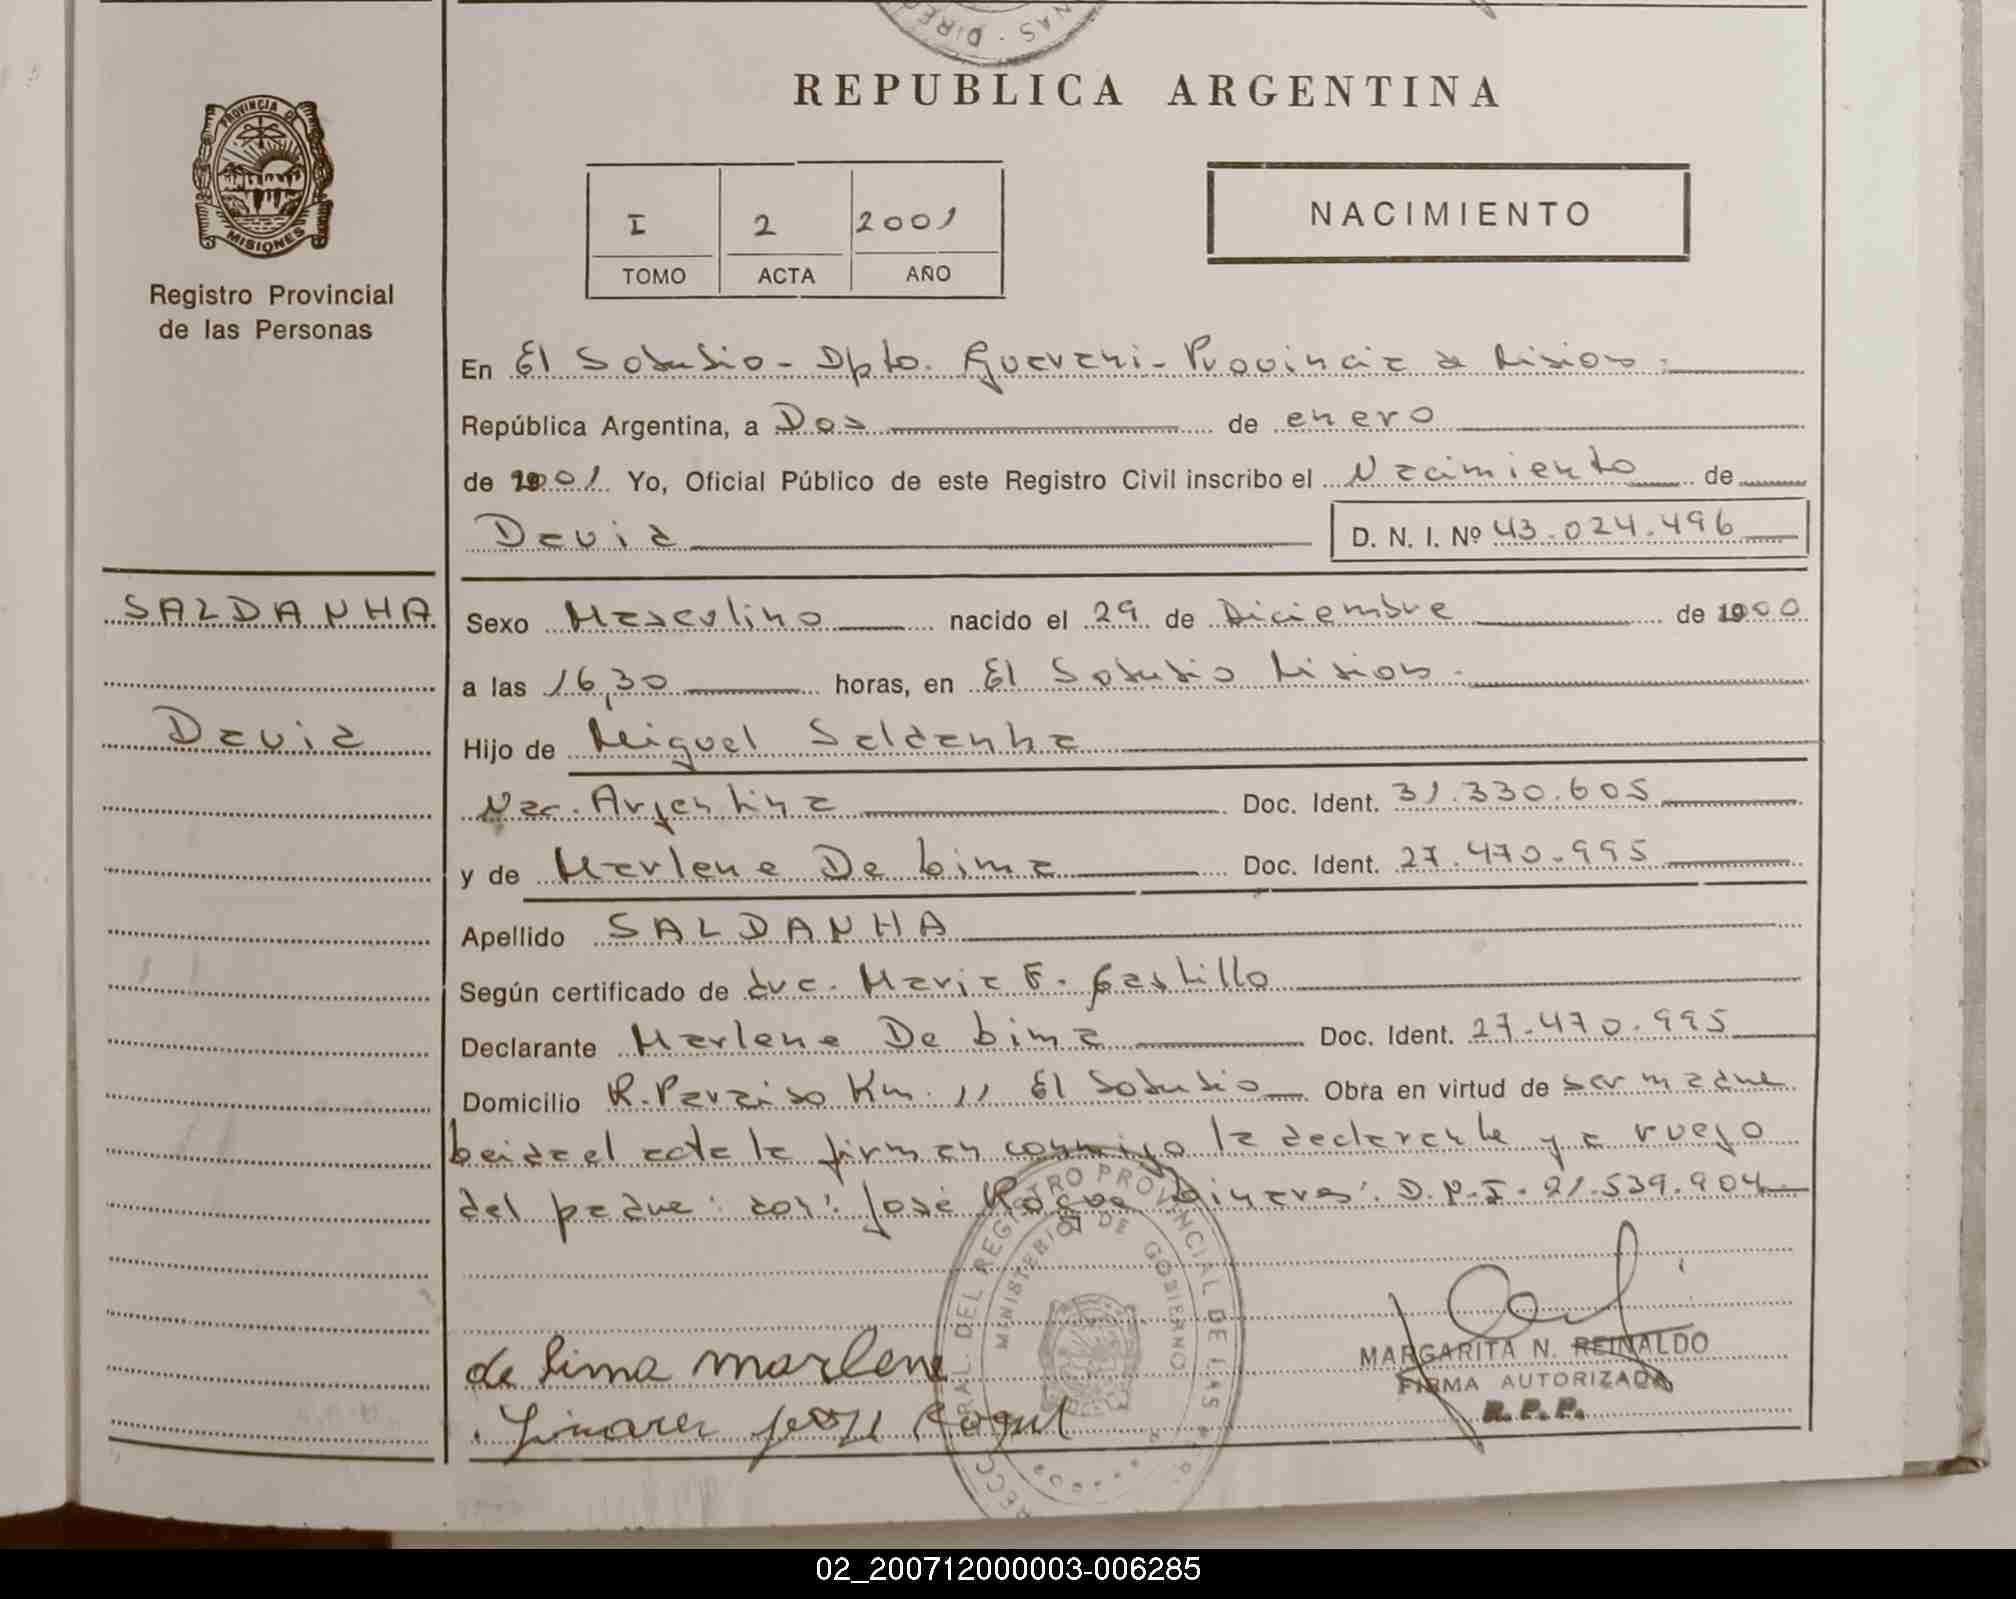 DIRE · NAS
REPUBLICA ARGENTINA
PROVINCIA DE
MISIONES
Registro Provincial
de las Personas
I 2 2001
TOMO ACTA AÑO
NACIMIENTO
En El Soberbio - Dpto. Guarani - Provincia de Misiones
República Argentina, a Dos de enero
de 2001 Yo, Oficial Público de este Registro Civil inscribo el Nacimiento de
David D. N. I. Nº 43.024.496
SALDANHA
David
Sexo Masculino nacido el 29 de Diciembre de 2000
a las 16,30 horas, en El Soberbio Misiones
Hijo de Miguel Saldanha
Nac. Argentina Doc. Ident. 31.330.605
y de Marlene De Lima Doc. Ident. 27.470.995
Apellido SALDANHA
Según certificado de Maria F. Castillo
Declarante Marlene De Lima Doc. Ident. 27.470.995
Domicilio R. Paraiso Km. 11 El Soberbio Obra en virtud de ser madre
Leida el acta la firman conmigo la declarante y a ruego
del padre: don: José Roque Linares: D.N.I. 21.539.904
de lima marlene
Linares José Roque
MARGARITA N. REINALDO
FIRMA AUTORIZADA
R. P. P.
RAL. DEL REGISTRO PROVINCIAL DE LAS
MINISTERIO DE GOBIERNO
02_200712000003-006285